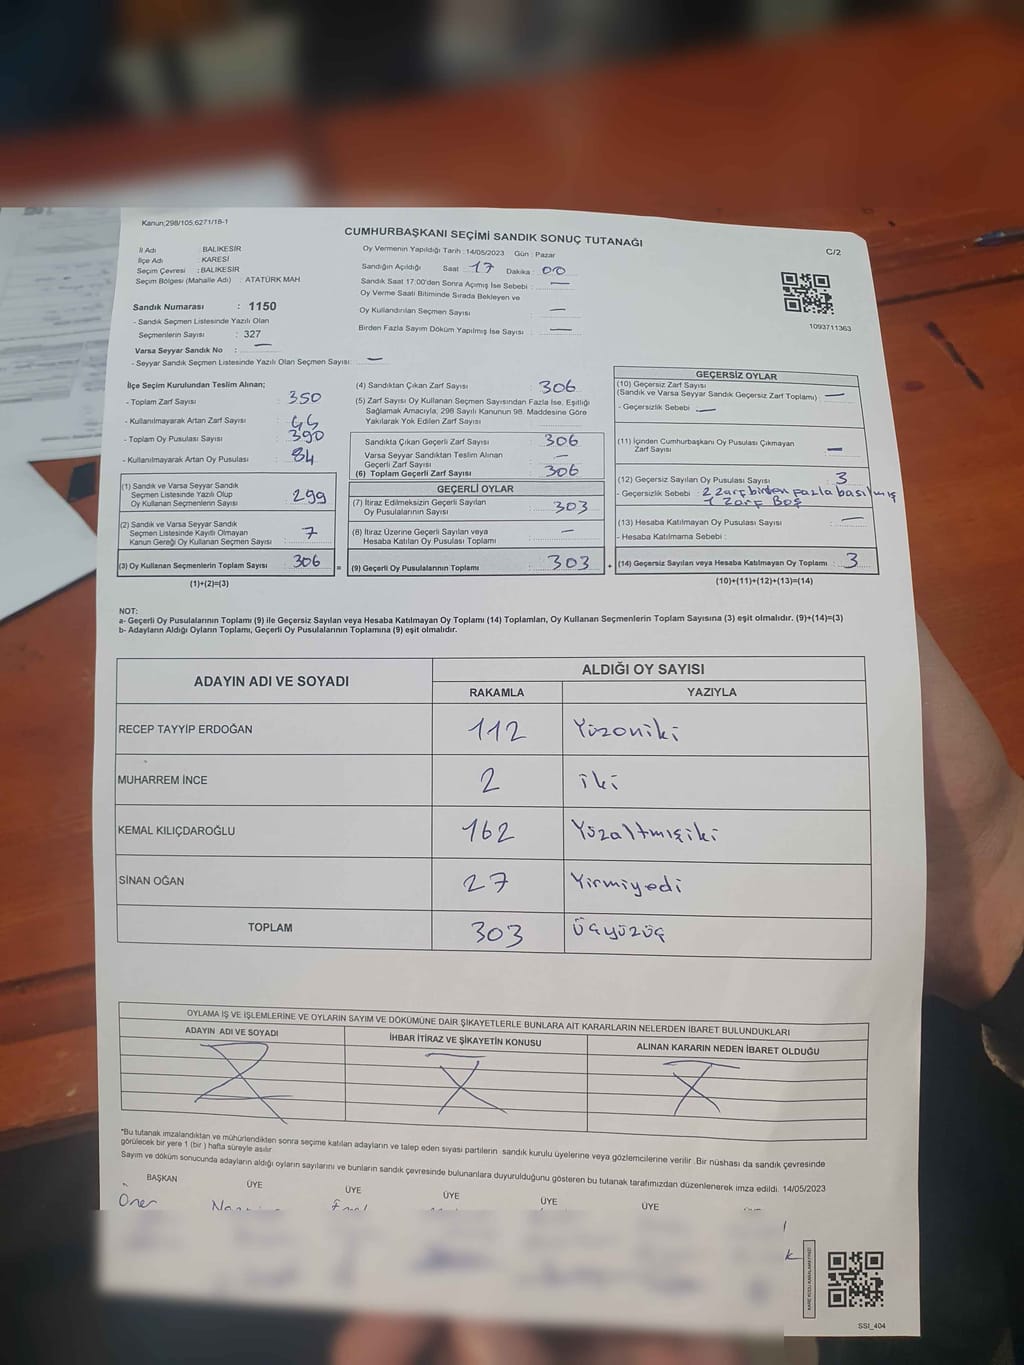 Kanun;298/105;6271/18-1
CUMHURBAŞKANI SEÇİMİ SANDIK SONUÇ TUTANAĞI
C/2
İl Adı : BALIKESİR
İlçe Adı : KARESİ
Seçim Çevresi : BALIKESİR
Seçim Bölgesi (Mahalle Adı) : ATATÜRK MAH
Oy Vermenin Yapıldığı Tarih : 14/05/2023 Gün : Pazar
Sandığın Açıldığı Saat : 17 Dakika : 00
Sandık Saat 17:00'den Sonra Açımış İse Sebebi : —
Oy Verme Saati Bitiminde Sırada Bekleyen ve
Oy Kullandırılan Seçmen Sayısı : —
Birden Fazla Sayım Döküm Yapılmış İse Sayısı : —
1093711363
Sandık Numarası : 1150
- Sandık Seçmen Listesinde Yazılı Olan
Seçmenlerin Sayısı : 327
Varsa Seyyar Sandık No : —
- Seyyar Sandık Seçmen Listesinde Yazılı Olan Seçmen Sayısı: —
İlçe Seçim Kurulundan Teslim Alınan;
- Toplam Zarf Sayısı : 350
- Kullanılmayarak Artan Zarf Sayısı :
- Toplam Oy Pusulası Sayısı : 390
- Kullanılmayarak Artan Oy Pusulası : 84
(1) Sandık ve Varsa Seyyar Sandık
Seçmen Listesinde Yazılı Olup
Oy Kullanan Seçmenlerin Sayısı : 299
(2) Sandık ve Varsa Seyyar Sandık
Seçmen Listesinde Kayıtlı Olmayan
Kanun Gereği Oy Kullanan Seçmen Sayısı : 7
(3) Oy Kullanan Seçmenlerin Toplam Sayısı : 306 =
(1)+(2)=(3)
(4) Sandıktan Çıkan Zarf Sayısı : 306
(5) Zarf Sayısı Oy Kullanan Seçmen Sayısından Fazla İse, Eşitliği
Sağlamak Amacıyla; 298 Sayılı Kanunun 98. Maddesine Göre
Yakılarak Yok Edilen Zarf Sayısı :
Sandıkta Çıkan Geçerli Zarf Sayısı : 306
Varsa Seyyar Sandıktan Teslim Alınan
Geçerli Zarf Sayısı : —
(6) Toplam Geçerli Zarf Sayısı : 306
GEÇERLİ OYLAR
(7) İtiraz Edilmeksizin Geçerli Sayılan
Oy Pusulalarının Sayısı : 303
(8) İtiraz Üzerine Geçerli Sayılan veya
Hesaba Katılan Oy Pusulası Toplamı : —
(9) Geçerli Oy Pusulalarının Toplamı : 303 +
GEÇERSİZ OYLAR
(10) Geçersiz Zarf Sayısı
(Sandık ve Varsa Seyyar Sandık Geçersiz Zarf Toplamı) : —
- Geçersizlik Sebebi : —
(11) İçinden Cumhurbaşkanı Oy Pusulası Çıkmayan
Zarf Sayısı : —
(12) Geçersiz Sayılan Oy Pusulası Sayısı : 3
- Geçersizlik Sebebi : 2 Zarf birden fazla basılmış
1 Zarf Boş
(13) Hesaba Katılmayan Oy Pusulası Sayısı : —
- Hesaba Katılmama Sebebi :
(14) Geçersiz Sayılan veya Hesaba Katılmayan Oy Toplamı : 3
(10)+(11)+(12)+(13)=(14)
NOT:
a- Geçerli Oy Pusulalarının Toplamı (9) ile Geçersiz Sayılan veya Hesaba Katılmayan Oy Toplamı (14) Toplamları, Oy Kullanan Seçmenlerin Toplam Sayısına (3) eşit olmalıdır. (9)+(14)=(3)
b- Adayların Aldığı Oyların Toplamı, Geçerli Oy Pusulalarının Toplamına (9) eşit olmalıdır.
ADAYIN ADI VE SOYADI
ALDIĞI OY SAYISI
RAKAMLA YAZIYLA
RECEP TAYYİP ERDOĞAN 112 Yüzoniki
MUHARREM İNCE 2 iki
KEMAL KILIÇDAROĞLU 162 Yüzaltmışiki
SİNAN OĞAN 27 Yirmiyedi
TOPLAM 303 Üçyüzüç
OYLAMA İŞ VE İŞLEMLERİNE VE OYLARIN SAYIM VE DÖKÜMÜNE DAİR ŞİKAYETLERLE BUNLARA AİT KARARLARIN NELERDEN İBARET BULUNDUKLARI
ADAYIN ADI VE SOYADI İHBAR İTİRAZ VE ŞİKAYETİN KONUSU ALINAN KARARIN NEDEN İBARET OLDUĞU
*Bu tutanak imzalandıktan ve mühürlendikten sonra seçime katılan adayların ve talep eden siyasi partilerin sandık kurulu üyelerine veya gözlemcilerine verilir. Bir nüshası da sandık çevresinde
görülecek bir yere 1 (bir ) hafta süreyle asılır.
Sayım ve döküm sonucunda adayların aldığı oyların sayılarını ve bunların sandık çevresinde bulunanlara duyurulduğunu gösteren bu tutanak tarafımızdan düzenlenerek imza edildi. 14/05/2023
BAŞKAN ÜYE ÜYE ÜYE ÜYE ÜYE
Öner
SSI_404